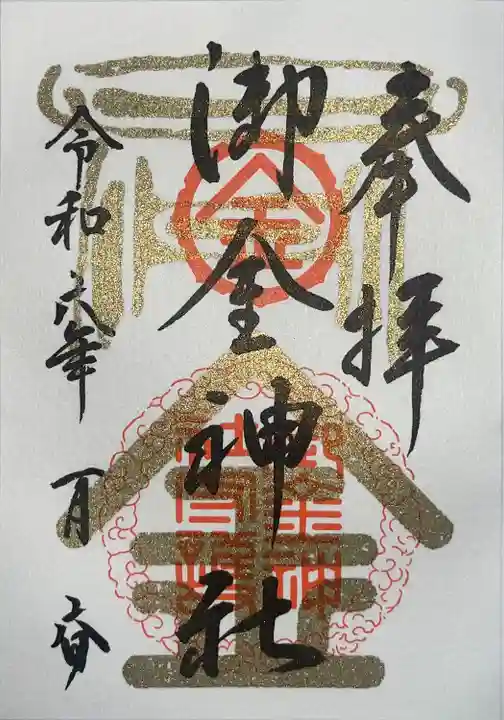 奉拝
御金神社
令和六年 一月
金
金